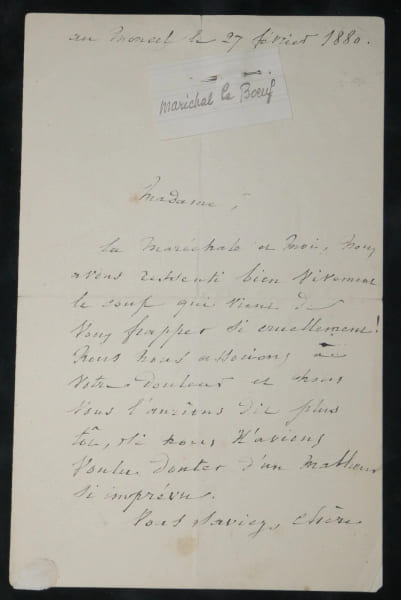 au Moncel le 27 février 1880.
Maréchal Le Boeuf
Madame,
La Maréchale et moi, nous
avons ressenti bien vivement
le coup qui vient de
vous frapper si cruellement!
Nous nous associons à
votre douleur et nous
vous l'aurions dit plus
tôt, si nous n'avions
voulu douter d'un malheur
si imprévu.
Vous saviez, chère